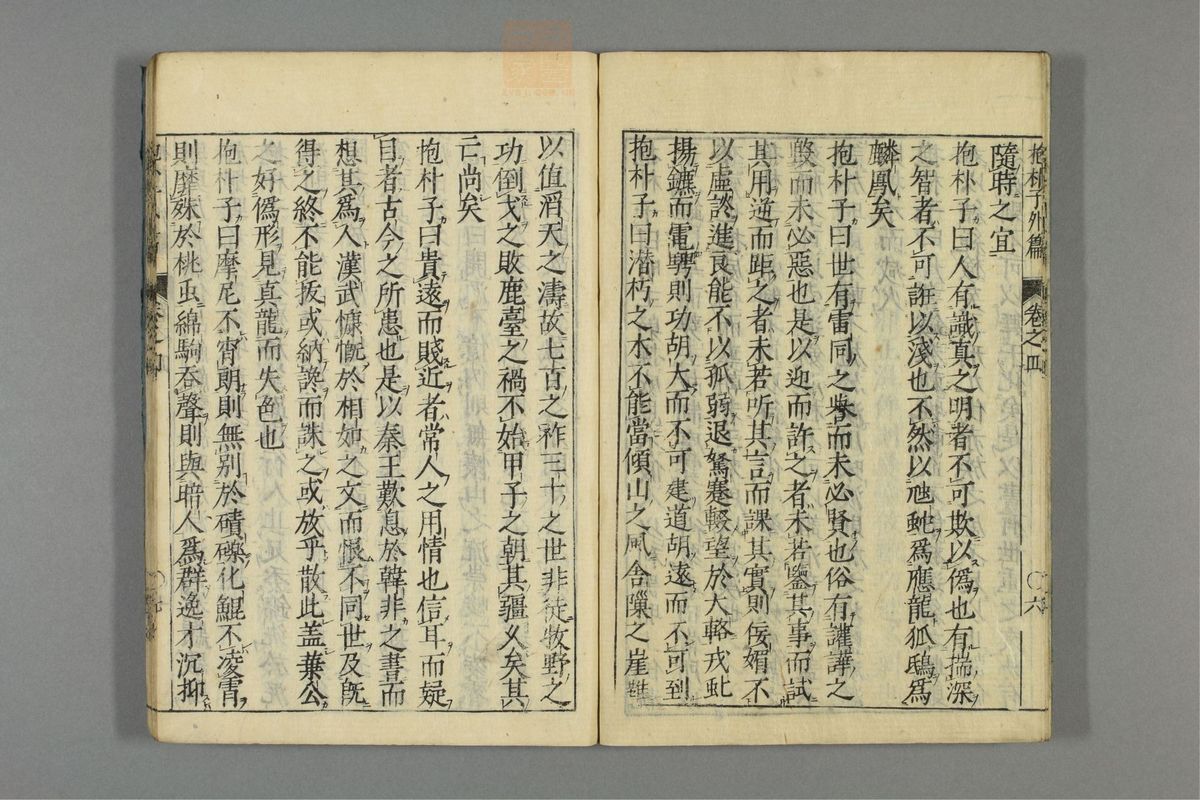 抱朴子外篇 卷之四 〇六
隨時之宜
抱朴子曰人有識真之明者不可欺以僞也有揣深
之智者不可誑以淺也不然以虺虵爲應龍狐鴟爲
麟鳳矣
抱朴子曰世有雷同之譽而未必賢也俗有讙譁之
毀而未必惡也是以迎而許之者未若鑒其事而試
其用逆而距之者未若听其言而課其實則佞媚不
以虛談進良能不以孤弱退駑蹇輟望於大輅戎虬
揚鑣而電騁則功胡大而不可建道胡遠而不可到
抱朴子曰潜朽之木不能當傾山之風含隟之崖難
以值滔天之濤故七百之祚三十之世非徒牧野之
功倒戈之敗鹿臺之禍不始甲子之朝其疆乆矣其
亡尚矣
抱朴子曰貴遠而賤近者常人之用情也信耳而疑
目者古今之所患也是以秦王歎息於韓非之書而
想其爲人漢武慷慨於相如之文而恨不同世及旣
得之終不能拔或納讒而誅之或放乎散此盖葉公
之好僞形見真龍而失色也
抱朴子曰摩尼不宵朗則無别於磧礫化鯤不凌霄
則靡殊於桃虫綿駒吞聲則與暗人爲群逸才沉抑